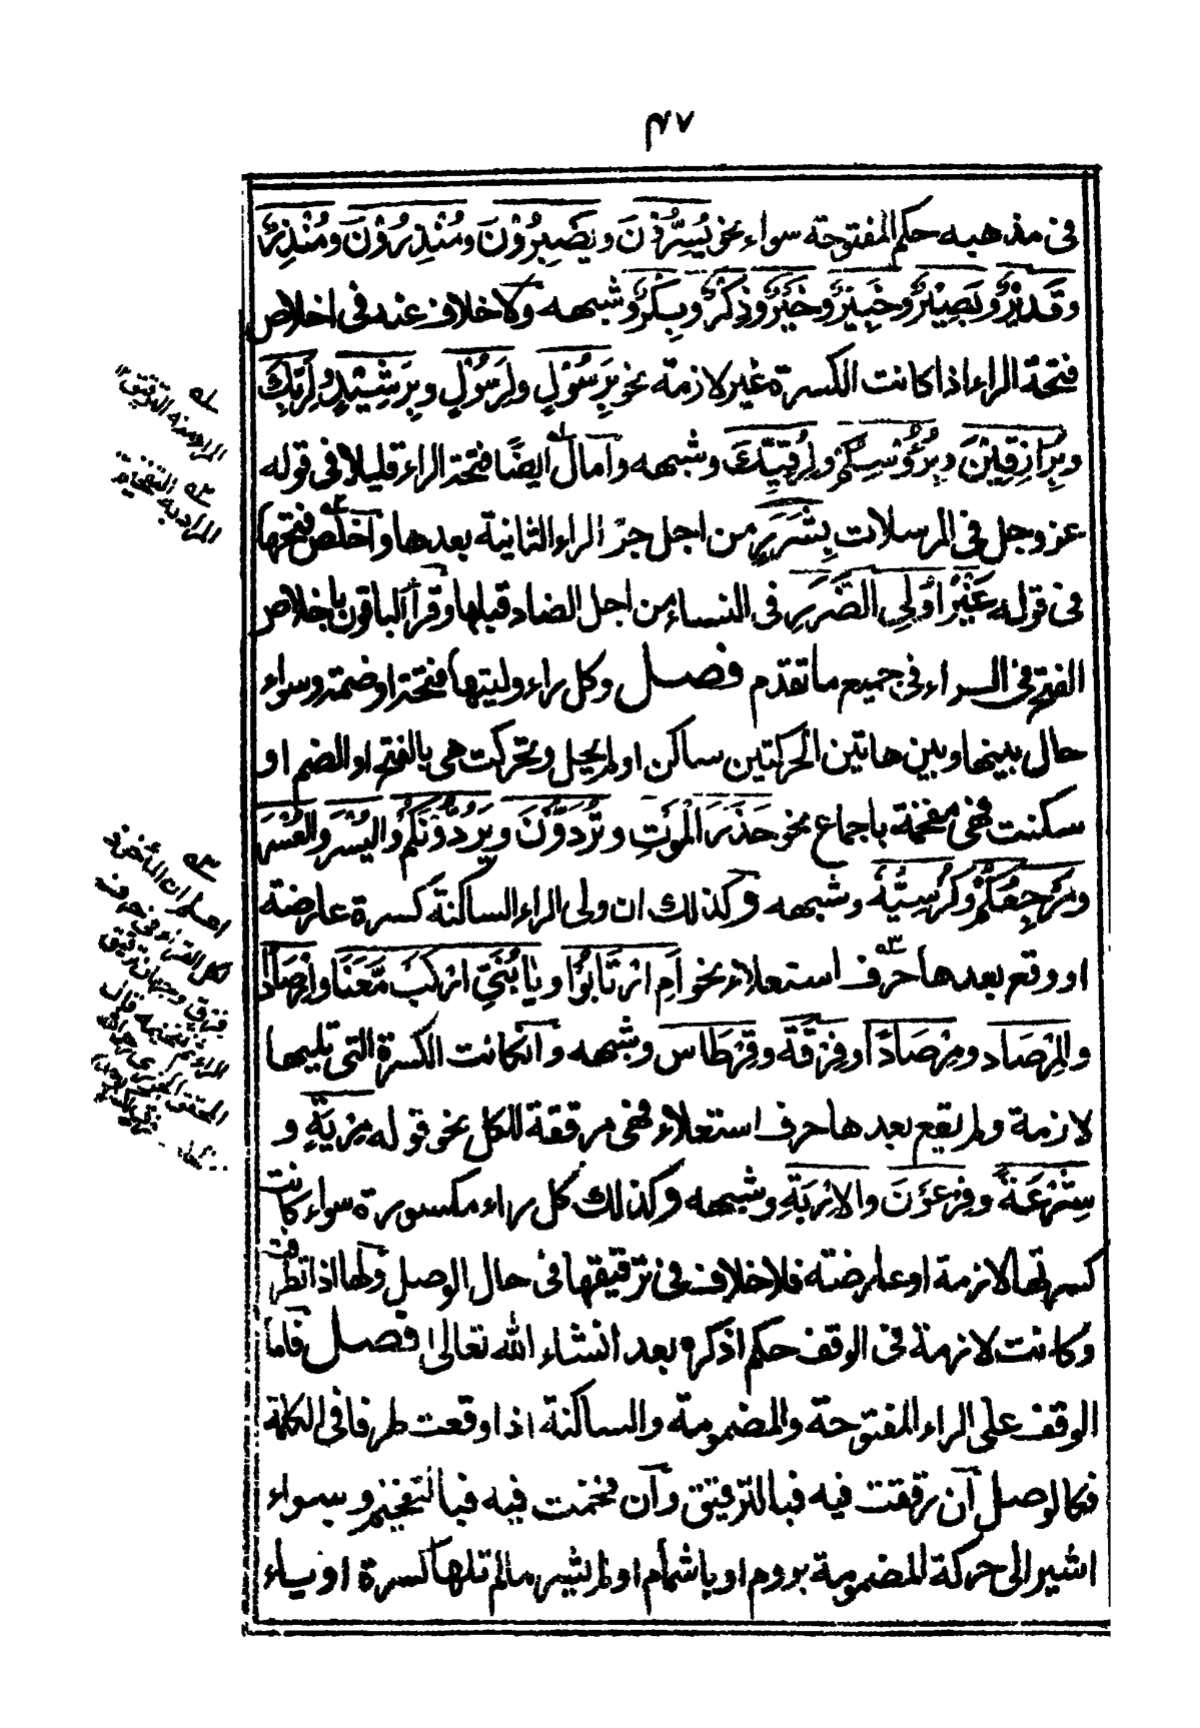 ٤٧
فى مذهبه حكم المفتوحة سواء نحو يُسِرُّوْنَ ويَصْبِرُوْنَ ومُنْذِرُوْنَ ومُنْذِرٌ
وقَدِيْرٌ وبَصِيْرٌ وخَبِيْرٌ وخَيْرٌ وذِكْرٌ وبِكْرٌ وشبهه ولا خلاف عنه فى اخلاص
فتحة الراء اذا كانت الكسرة غير لازمة نحو بِرَسُوْلٍ ولِرَسُوْلٍ وبِرَشِيْدٍ ولِرَبِّكَ
وبِرَازِقِيْنَ وبِرُءُوْسِكُمْ ولِرُقِيِّكَ وشبهه وامال ايضًا فتحة الراء قليلا فى قوله
عز وجل فى المرسلات بِشَرَرٍ من اجل جرّ الراء الثانية بعدها واخلص فتحها
فى قوله غَيْرُ اُولِى الضَّرَرِ فى النساء من اجل الضاد قبلها وقرأ الباقون باخلاص
الفتح فى الراء فى جميع ما تقدم فصل وكل راء وليتها فتحة او ضمة وسواء
حال بينها وبين هاتين الحركتين ساكن او لم يحل وتحركت هى بالفتح او الضم او
سكنت فهى مفخمة باجماع نحو حَذَرَ الْمَوْتِ وتُرَدُّوْنَ ويَرُدُّوْنَكُمْ واليُسْرَ والعُسْرَ
ومَرْجِعُكُمْ وكُرْسِيُّهُ وشبهه وكذلك ان ولى الراء الساكنة كسرة عارضة
او وقع بعدها حرف استعلاء نحو اَمِ ارْتَابُوْا ويَا بُنَىَّ ارْكَبْ مَّعَنَا واِرْصَادًا
والمِرْصَاد ومِرْصَادًا وفِرْقَة وقِرْطَاس وشبهه وان كانت الكسرة التى تليها
لازمة ولم يقع بعدها حرف استعلاء فهى مرققة للكل نحو قوله مِرْيَةٍ و
شِرْعَةً وفِرْعَوْنَ والاِرْبَةِ وشبهه وكذلك كل راء مكسورة سواء كانت
كسرتها لازمة او عارضة فلا خلاف فى ترقيقها فى حال الوصل ولها اذا تطرفت
وكانت لازمة فى الوقف حكم اذكره بعد انشاء الله تعالى فصل فاما
الوقف على الراء المفتوحة والمضمومة والساكنة اذا وقعت طرفا فى الكلمة
فكالوصل ان رققت فيه فبالترقيق وان فخمت فيه فبالتفخيم وسواء
اشير الى حركة المضمومة بروم او باشمام او لم يشر ما لم تلها كسرة او ياء
له
الراد منه الترقيق ١٢
٢ه
المراد به التفخيم
٣ه
اعلم ان المأخوذ
لكل القراء فى حرف
فرق وجهان ترقيق
الراء وتفخيمه قال
المحقق الجزرى